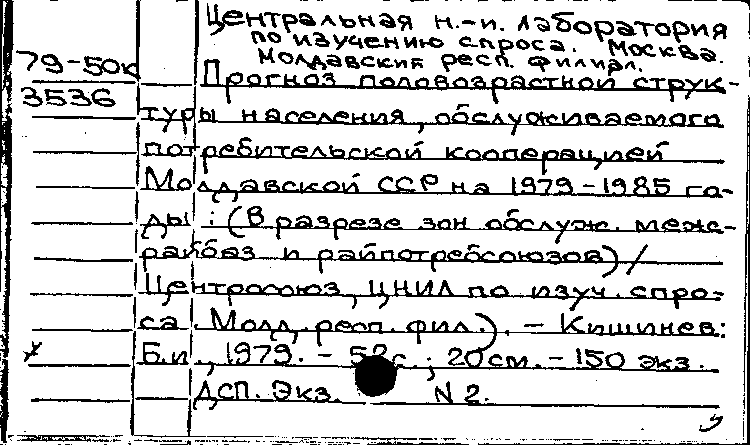 Центральная н.-и. лаборатория
по изучению спроса. Москва.
Молдавский респ. филиал.
79-50к
3536
Прогноз половозрастной струк-
туры населения, обслуживаемого
потребительской кооперацией
Молдавской ССР на 1979-1985 го-
ды : (В разрезе зон обслуж. меж-
райбаз и райпотребсоюзов) /
Центросоюз, ЦНИЛ по изуч. спро-
са. Молд. респ. фил.). - Кишинев:
Б.и., 1979. - 52с.; 20см. - 150 экз.
ДСП. Экз. N 2.